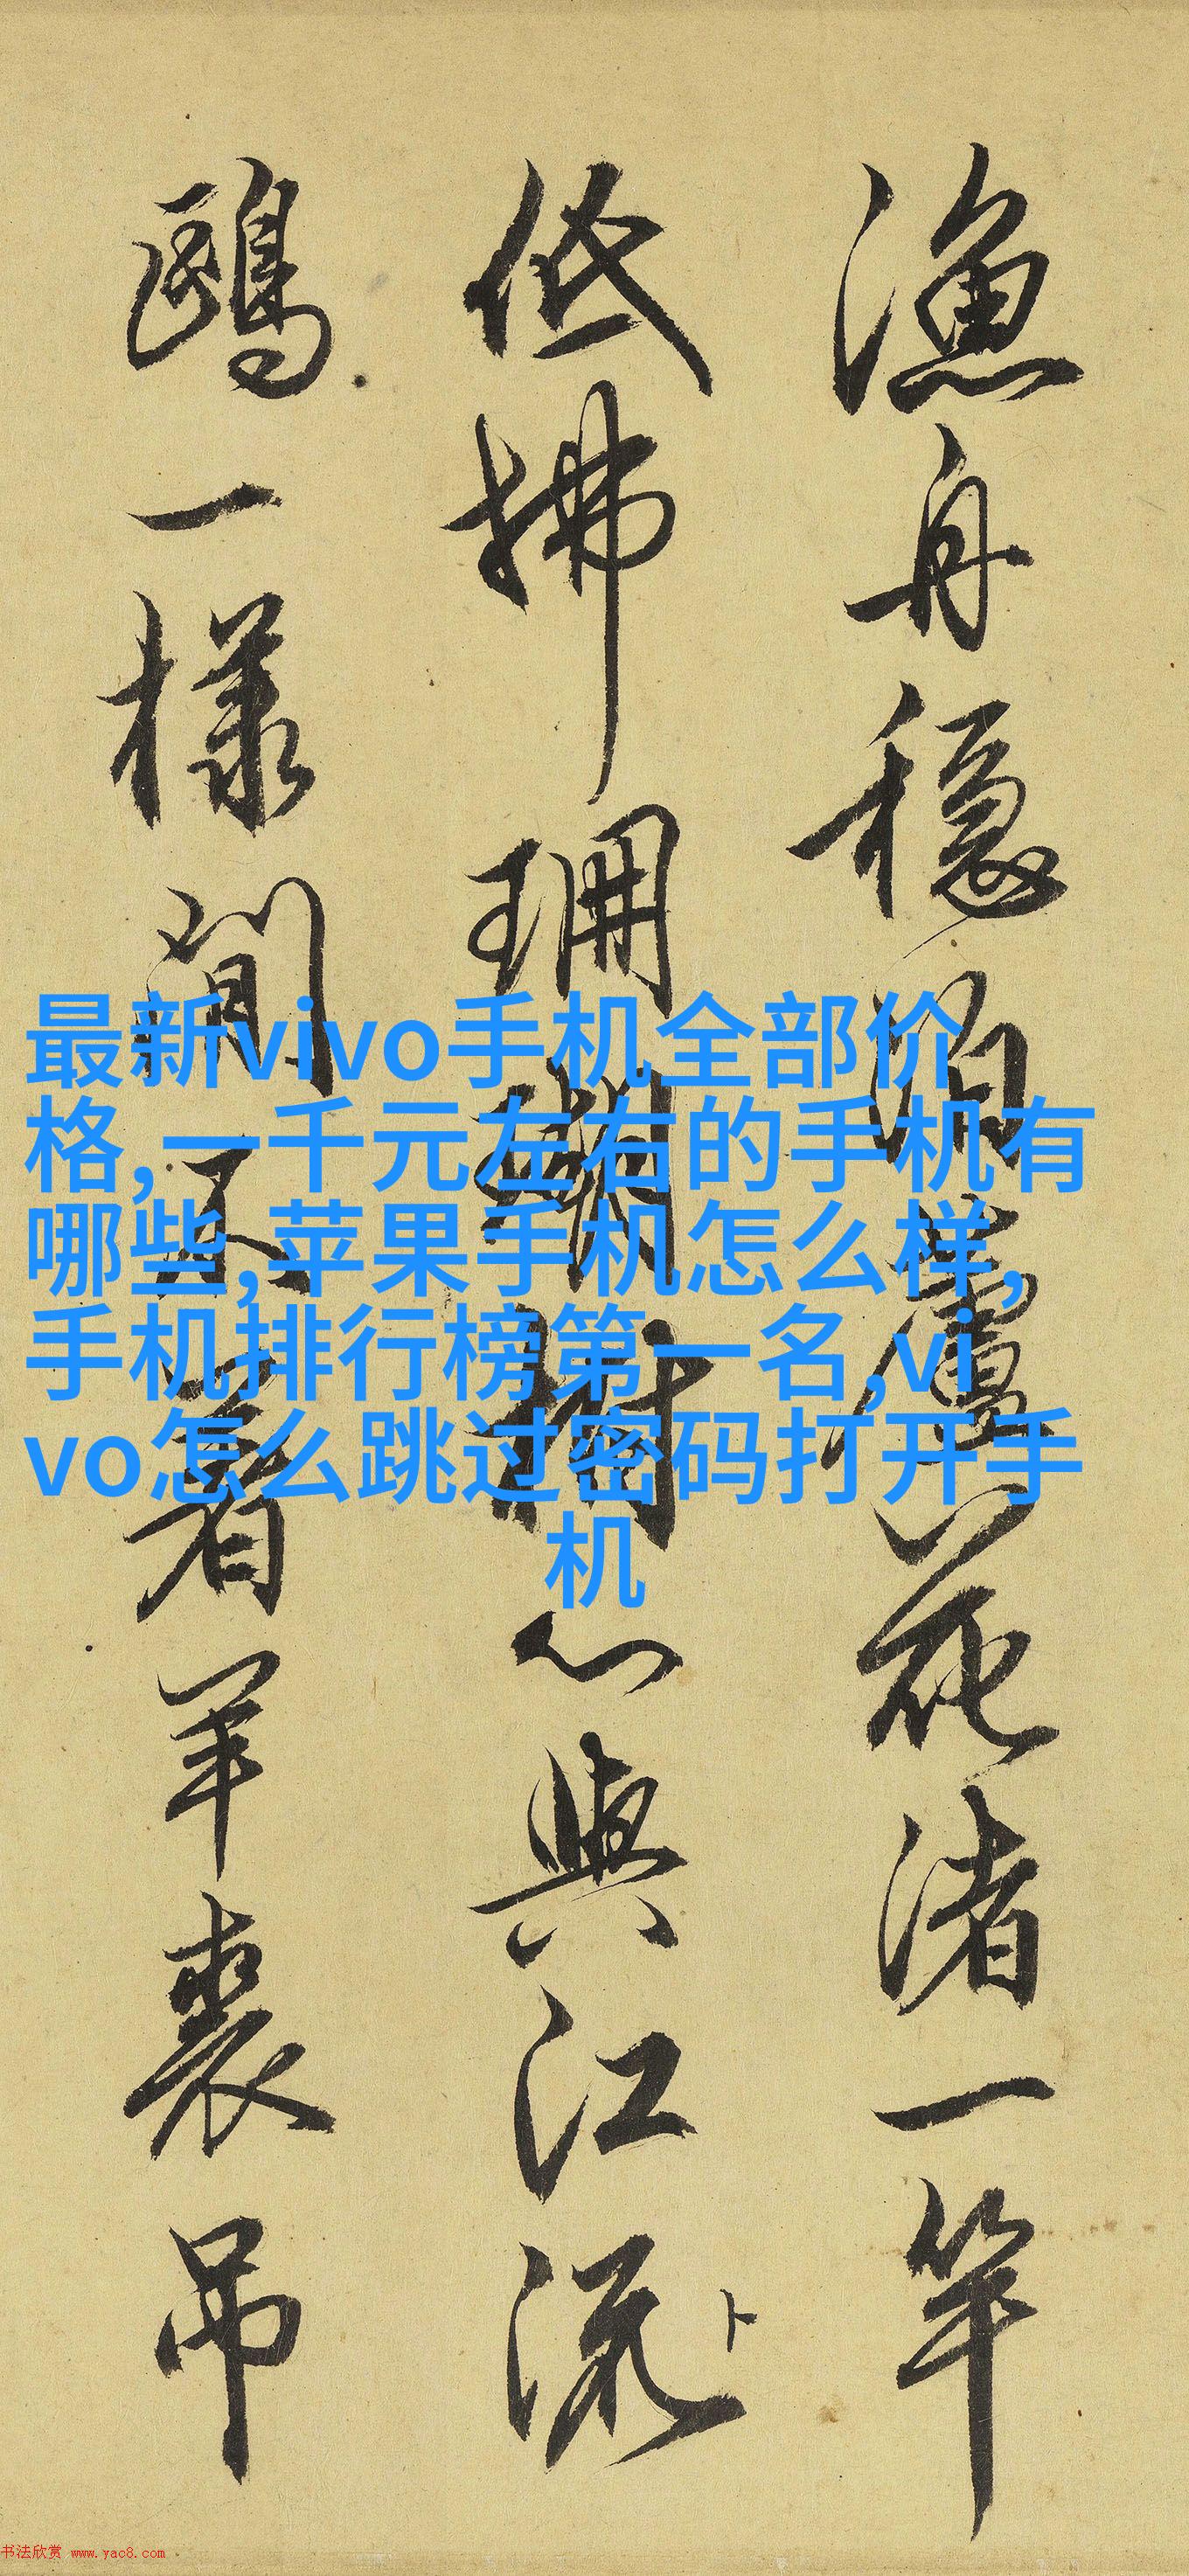 漁舟穩泊蘆花渚一竿
低拂珊瑚樹心與江流
鷗一樣閒不著羊裘吊
最新vivo手机全部价
格,一千元左右的手机有
哪些,苹果手机怎么样,
手机排行榜第一名,vi
vo怎么跳过密码打开手
机
书法欣赏 www.yac8.com